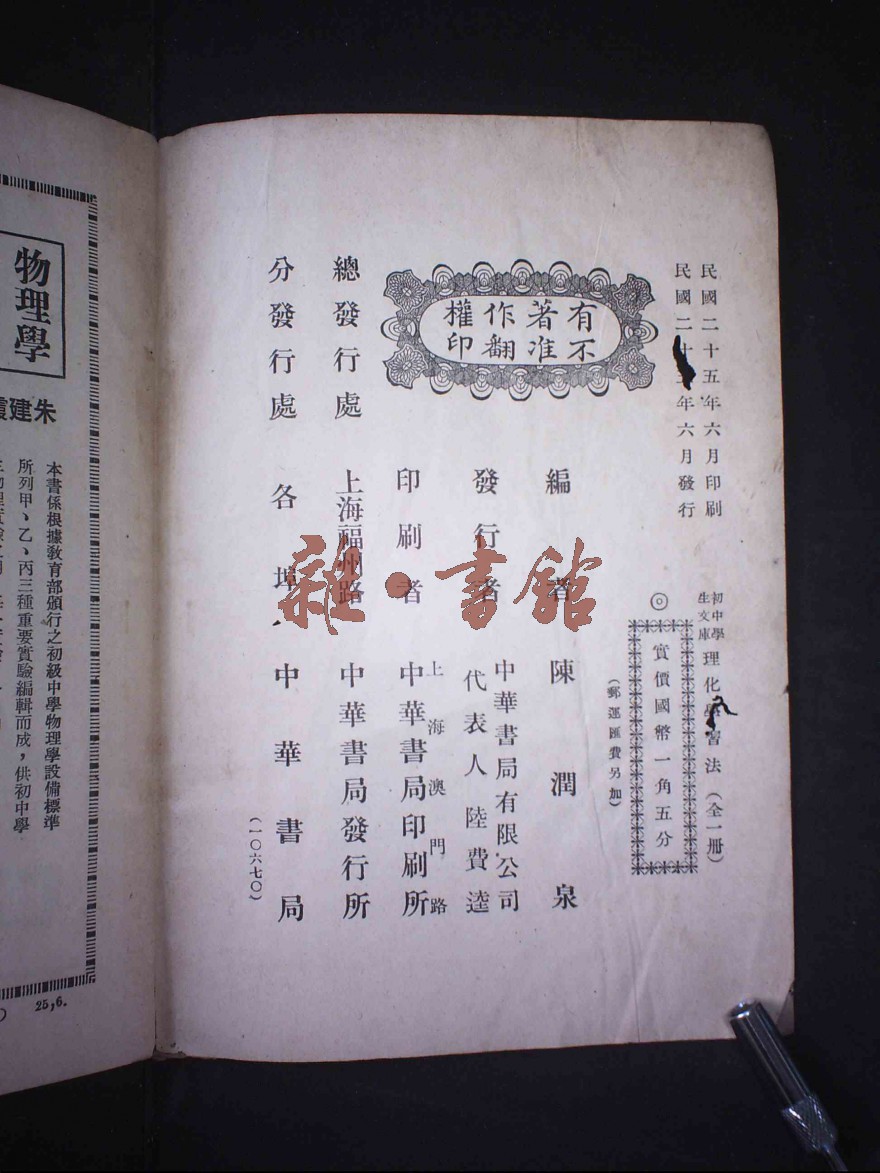 民國二十五年六月印刷
民國二十年六月發行
初中學生文庫 理化學習法（全一冊）
◎實價國幣一角五分
（郵運匯費另加）
有著作權
不准翻印
編者 陳潤泉
發行者 中華書局有限公司
代表人 陸費逵
印刷者 上海澳門路
中華書局印刷所
總發行處 上海福州路 中華書局發行所
分發行處 各埠 中華書局
（一〇六七〇）
雜·書館
物理學
朱建
本書係根據教育部頒行之初級中學物理學設備標準
所列甲、乙、丙三種重要實驗編輯而成，供初中學
25,6.